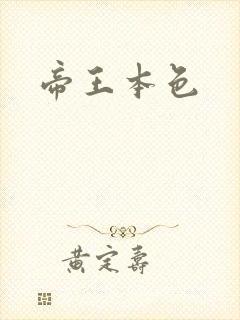 帝王本色
黄定寿